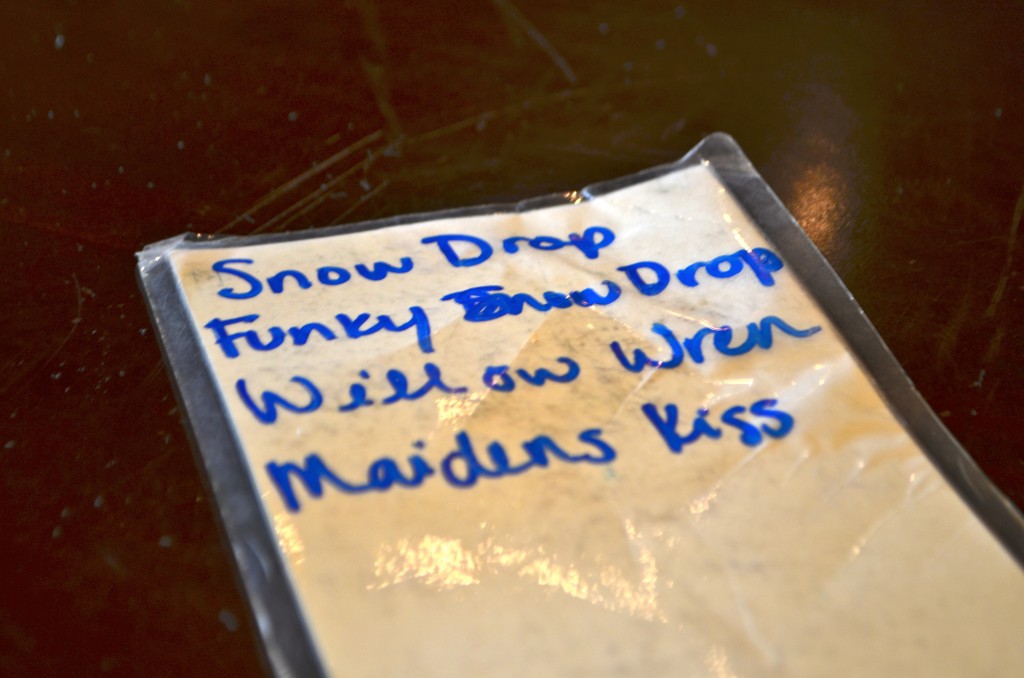 Snow Drop
Funky Snow Drop
Willow Wren
Maidens Kiss